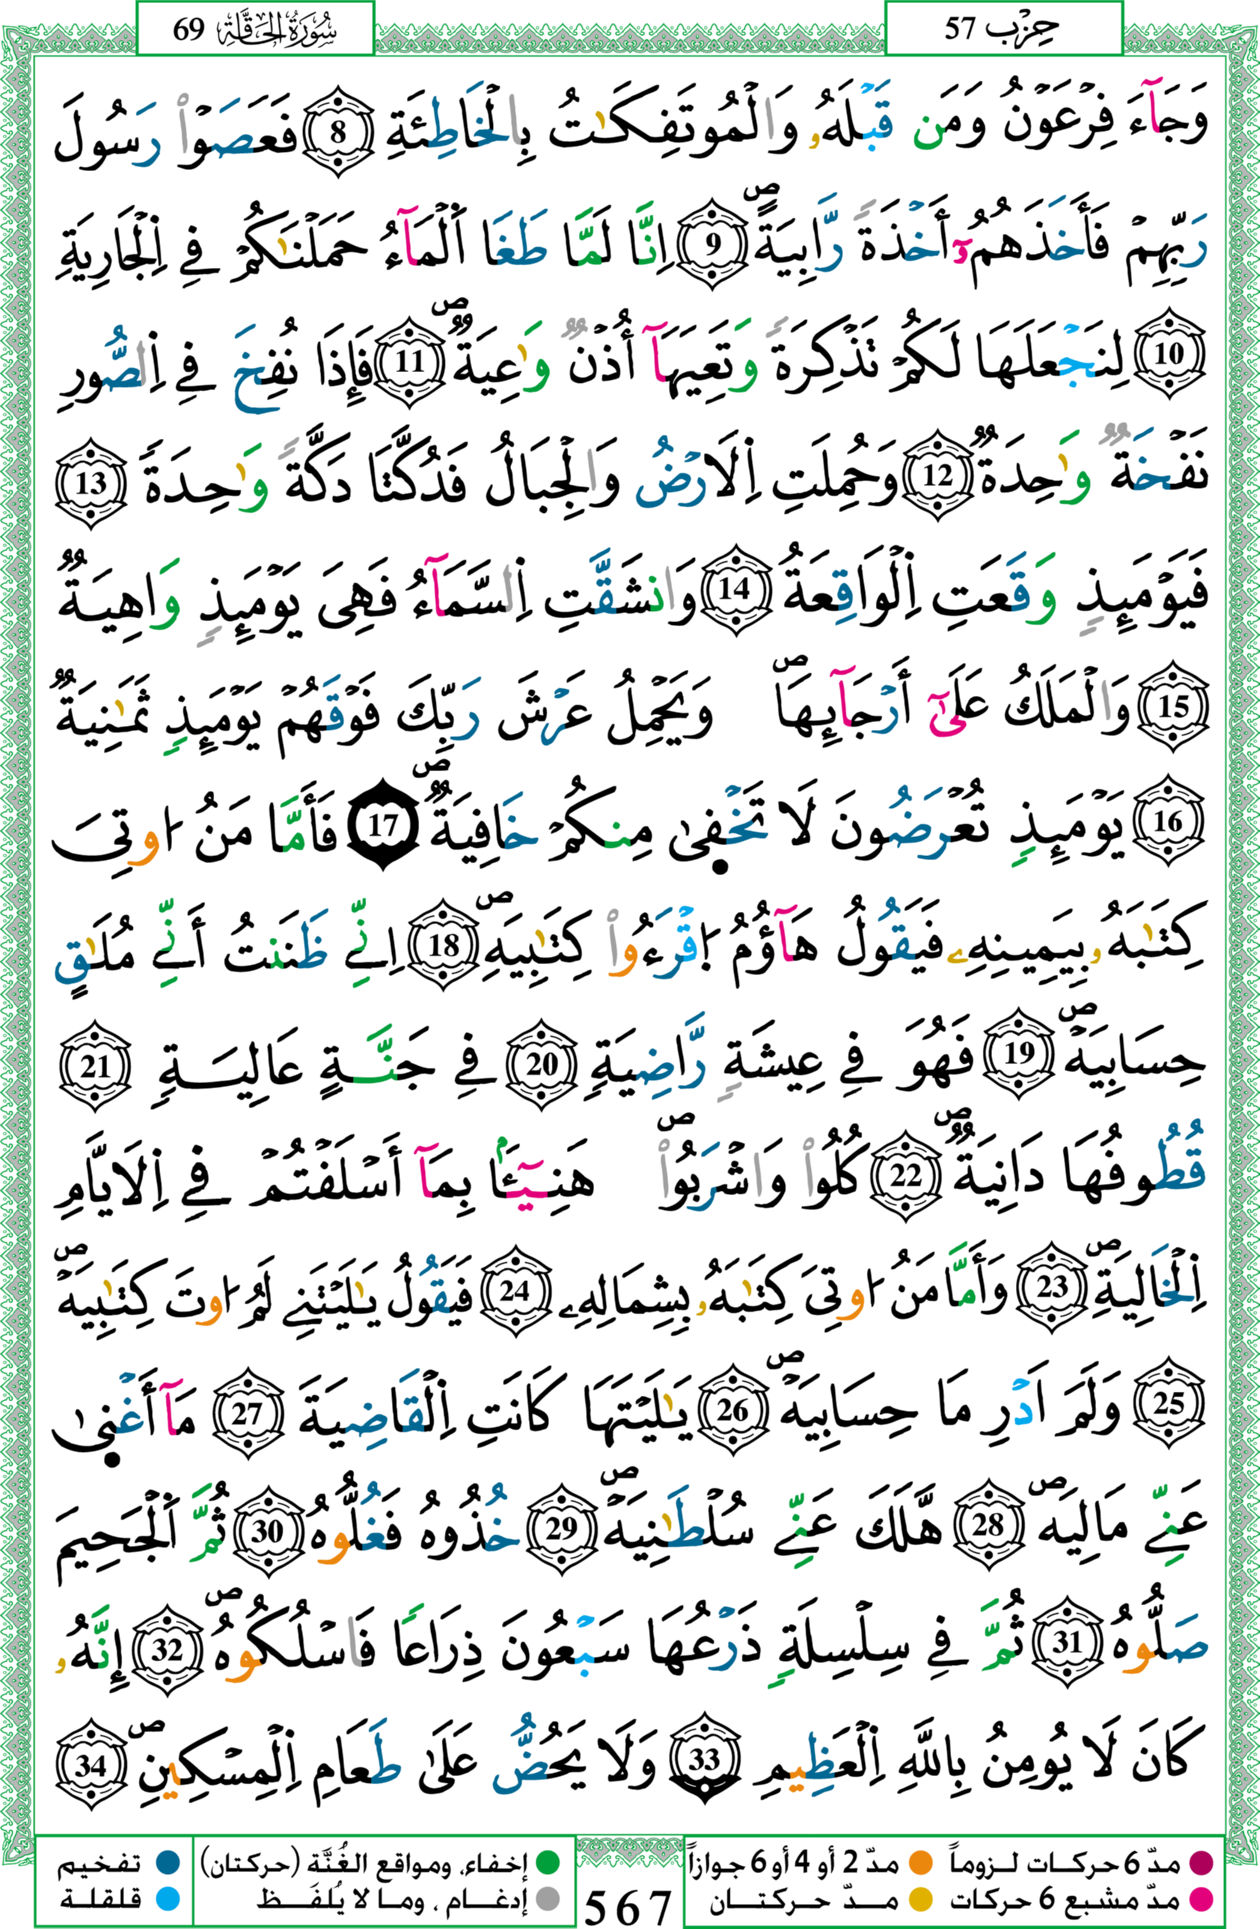 سُورَةُ الحَاقَّةِ 69
حِزْب 57
وَجَآءَ فِرْعَوْنُ وَمَن قَبْلَهُۥ وَالْمُوتَفِكَٰتُ بِالْخَاطِئَةِ 8 فَعَصَوْا رَسُولَ
رَبِّهِمْ فَأَخَذَهُمُۥٓ أَخْذَةً رَّابِيَةًۖ 9 اِنَّا لَمَّا طَغَا اَ۬لْمَآءُ حَمَلْنَٰكُمْ فِے اِ۬لْجَارِيَةِ
10 لِنَجْعَلَهَا لَكُمْ تَذْكِرَةً وَتَعِيَهَآ أُذْنٌ وَٰعِيَةٌۖ 11 فَإِذَا نُفِخَ فِے اِ۬لصُّورِ
نَفْخَةٌ وَٰحِدَةٌ 12 وَحُمِلَتِ اِ۬لَارْضُ وَالْجِبَالُ فَدُكَّتَا دَكَّةً وَٰحِدَةً 13
فَيَوْمَئِذٍ وَقَعَتِ اِ۬لْوَاقِعَةُ 14 وَانشَقَّتِ اِ۬لسَّمَآءُ فَهِىَ يَوْمَئِذٍ وَاهِيَةٌ
15 وَالْمَلَكُ عَلَىٰٓ أَرْجَآئِهَاۖ وَيَحْمِلُ عَرْشَ رَبِّكَ فَوْقَهُمْ يَوْمَئِذٍ ثَمَٰنِيَةٌ
16 يَوْمَئِذٍ تُعْرَضُونَ لَا تَخْفٜىٰ مِنكُمْ خَافِيَةٌۖ 17 فَأَمَّا مَنُ ا۟وتِىَ
كِتَٰبَهُۥ بِيَمِينِهِۦ فَيَقُولُ هَآؤُمُ اُ۪قْرَءُوا كِتَٰبِيَهْۖ 18 اِنِّے ظَنَنتُ أَنِّے مُلَٰقٍ
حِسَابِيَهْۖ 19 فَهُوَ فِے عِيشَةٍ رَّاضِيَةٍ 20 فِے جَنَّةٍ عَالِيَةٍ 21
قُطُوفُهَا دَانِيَةٌۖ 22 كُلُوا وَاشْرَبُواۖ هَنِيٓـًٔا بِمَآ أَسْلَفْتُمْ فِے اِ۬لَايَّامِ
اِ۬لْخَالِيَةِۖ 23 وَأَمَّا مَنُ ا۟وتِىَ كِتَٰبَهُۥ بِشِمَالِهِۦ 24 فَيَقُولُ يَٰلَيْتَنِے لَمُ ا۟وتَ كِتَٰبِيَهْۖ
25 وَلَمَ اَدْرِ مَا حِسَابِيَهْۖ 26 يَٰلَيْتَهَا كَانَتِ اِ۬لْقَاضِيَةَ 27 مَآ أَغْنٜىٰ
عَنِّے مَالِيَهْۖ 28 هَّلَكَ عَنِّے سُلْطَٰنِيَهْۖ 29 خُذُوهُ فَغُلُّوهُ 30 ثُمَّ اَ۬لْجَحِيمَ
صَلُّوهُ 31 ثُمَّ فِے سِلْسِلَةٍ ذَرْعُهَا سَبْعُونَ ذِرَاعًا فَاسْلُكُوهُۖ 32 إِنَّهُۥ
كَانَ لَا يُومِنُ بِاللَّهِ اِ۬لْعَظِيمِ 33 وَلَا يَحُضُّ عَلَىٰ طَعَامِ اِ۬لْمِسْكِينِۖ 34
مدّ 6 حركات لـزوماً مدّ 2 أو 4 أو 6 جوازاً
مدّ مشبع 6 حركات مـدّ حـركتـان
567
إخفاء، ومواقع الغُنَّة (حركتان) تفخيم
إدغـام ، ومـا لا يُلفَـظ قلقلة